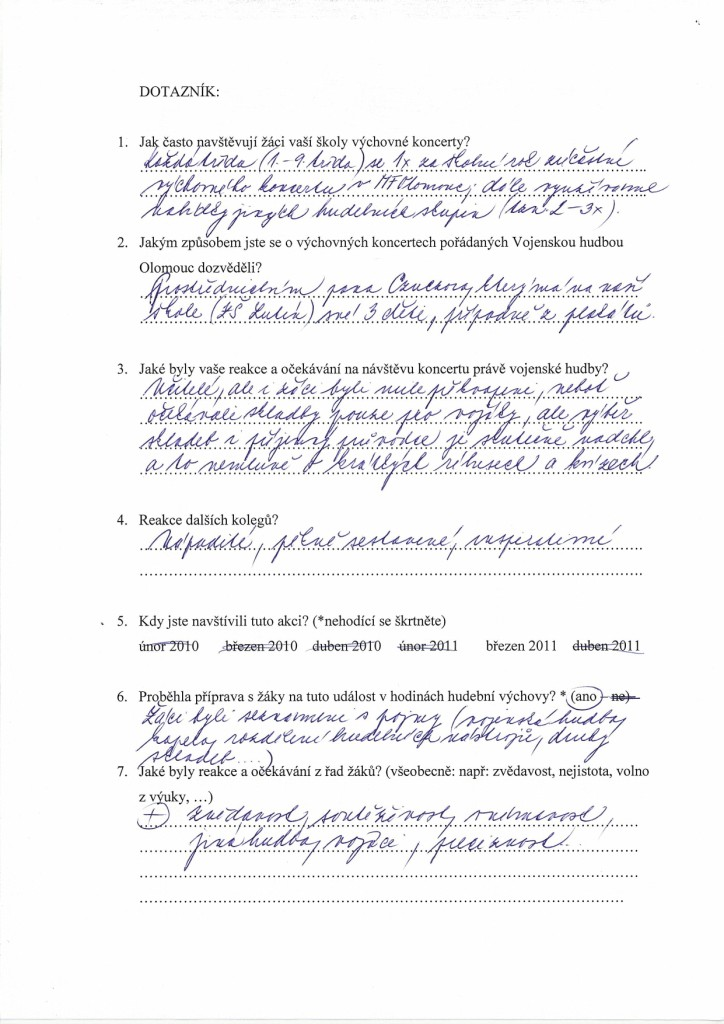 DOTAZNÍK:
1. Jak často navštěvují žáci vaší školy výchovné koncerty?
každá třída (1.-9. třída) se 1x za školní rok zúčastní
výchovného koncertu v MFOlomouc, dále využíváme
nabídky jiných hudebních skupin (tak 2-3x).
2. Jakým způsobem jste se o výchovných koncertech pořádaných Vojenskou hudbou
Olomouc dozvěděli?
Prostřednictvím pana který má na naší
škole (ZŠ Lutín) své 3 děti, případně z plakátů.
3. Jaké byly vaše reakce a očekávání na návštěvu koncertu právě vojenské hudby?
Učitelé, ale i žáci byli mile překvapeni, neboť
očekávali skladby pouze pro vojáky, ale výběr
skladeb i příjemný průvodce je skutečně nadchly
a to nemluvě o krátkých rébusech a kvízech
4. Reakce dalších kolegů?
Nápadité, pěkně sestavené, inspirativní
5. Kdy jste navštívili tuto akci? (*nehodící se škrtněte)
únor 2010 březen 2010 duben 2010 únor 2011 březen 2011 duben 2011
6. Proběhla příprava s žáky na tuto událost v hodinách hudební výchovy? * (ano – ne)
Žáci byli seznámeni s pojmy (vojenská hudba,
kapela, rozdělení hudebních nástrojů, druhy
skladeb....)
7. Jaké byly reakce a očekávání z řad žáků? (všeobecně: např: zvědavost, nejistota, volno
z výuky, …)
+ zvědavost, soutěživost,
jiná hudba, vojáci, preciznost.